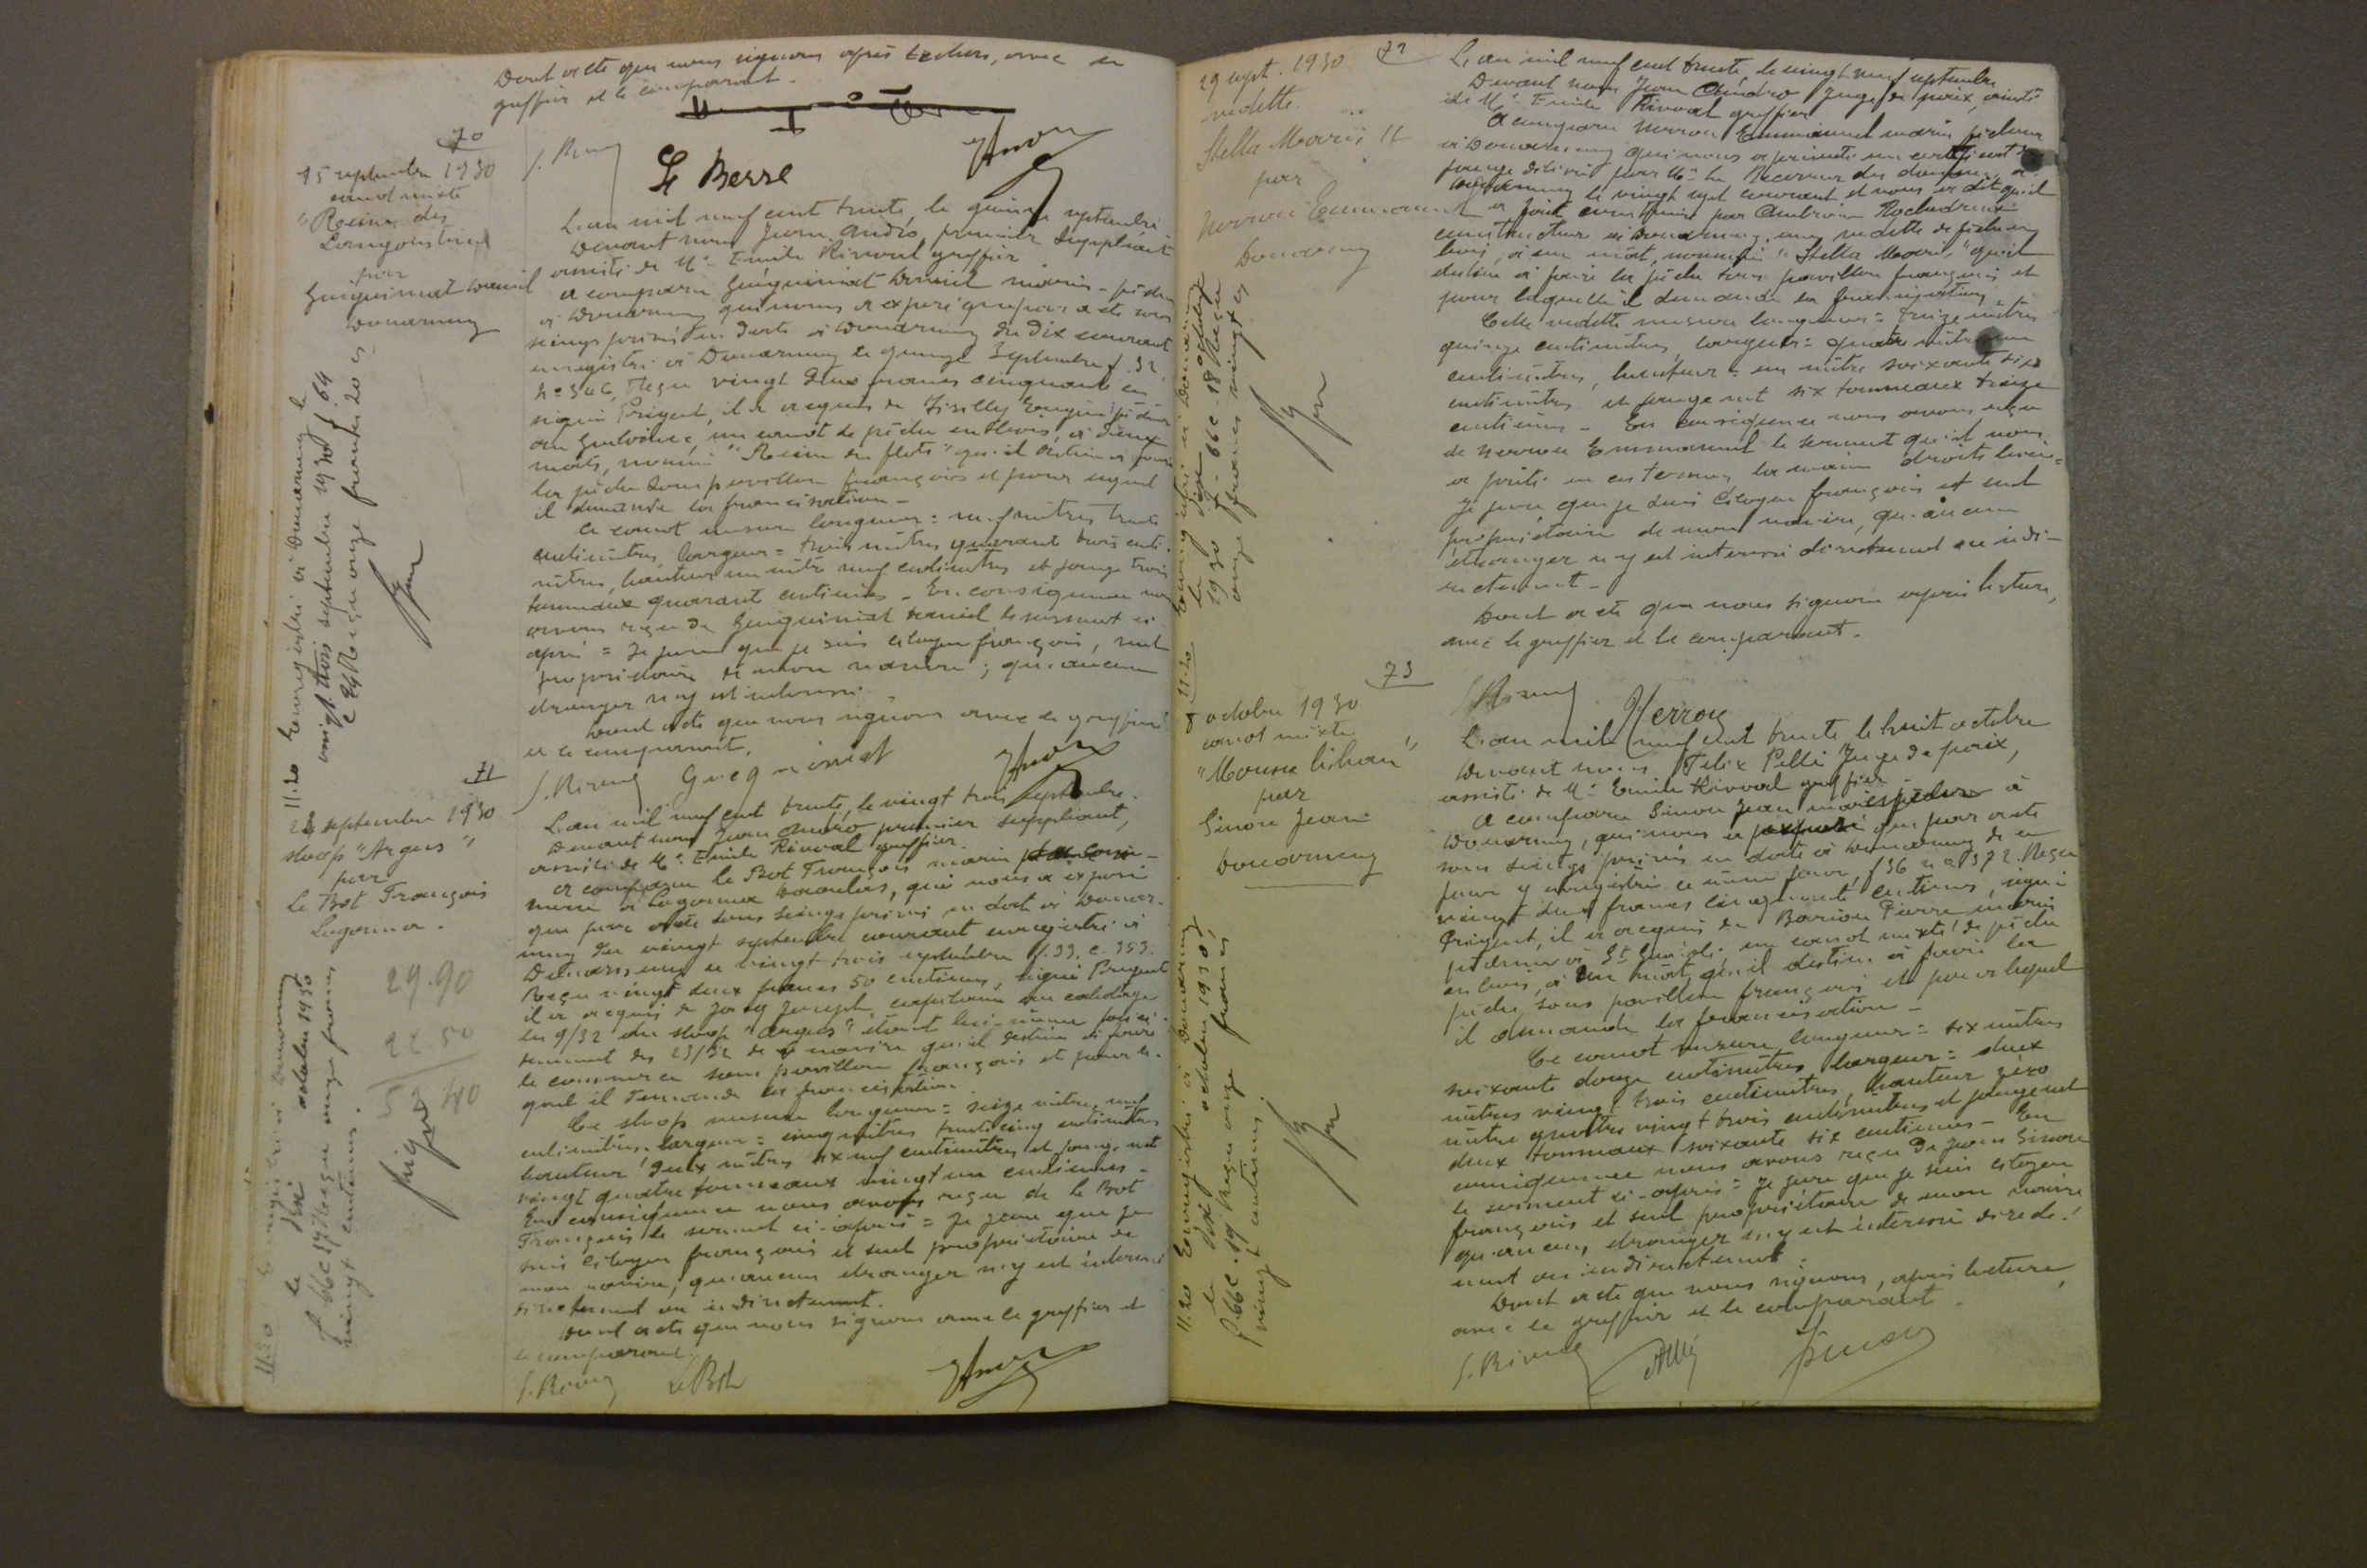 Dont acte que nous signons après lecture, avec le
greffier et le comparant.
Le Berre
70
15 septembre 1930
canot mixte
"Reine des
Langoustines"
par
Guéguiniat Daniel
Douarnenez
L'an mil neuf cent trente, le quinze septembre
Devant nous Jean Andro, premier suppléant
assisté de Me Emile Rivoal greffier
a comparu Guéguiniat Daniel marin-pêcheur
à Douarnenez qui nous a exposé que par acte sous
seings privés en date à Douarnenez du dix courant
enregistré à Douarnenez le quinze Septembre f. 32,
no 346, Reçu vingt deux francs cinquante cs
signé Prigent, il a acquis de
au Guilvinec, un canot de pêche en bois, à deux
mâts, nommé "Reine des flots" qu'il destine à faire
la pêche sous pavillon français et pour lequel
il demande la francisation -
Ce canot mesure longueur = neuf mètres trente
centimètres, largeur = trois mètres quarante trois centi-
mètres, hauteur un mètre neuf centimètres et jauge trois
tonneaux quarante centièmes - En conséquence nous
avons reçu de Guéguiniat Daniel le serment ci-
après = Je jure que je suis citoyen français, seul
propriétaire de mon navire ; qu'aucun
étranger n'y est intéressé.
Dont acte que nous signons avec le greffier
et le comparant.
S. Rivoal Gueguiniat
11.20 Enregistré à Douarnenez le
vingt trois septembre 1930 f 64
Reçu onze francs 20 cs
71
septembre 1930
sloop "Argus"
par
Le Bot François
Logonna.
29.90
22.50
L'an mil neuf cent trente, le vingt trois septembre.
Devant nous Jean Andro premier suppléant,
assisté de Me Emile Rivoal greffier.
a comparu Le Bot François marin
à Logonna Daoulas, qui nous a exposé
que par acte sous seings privés en date à Douar-
nenez du vingt septembre courant enregistré à
Douarnenez le vingt-trois septembre f. 33, c. 353.
Reçu vingt deux francs 50 centimes, signé Prigent
il a acquis de Joseph, capitaine au cabotage
les 9/32 du sloop "Argus" étant lui-même posses-
seur des 23/32 de ce navire qu'il destine à faire
le commerce sous pavillon français et pour le-
quel il demande la francisation.
Ce sloop mesure longueur = seize mètres neuf
centimètres largeur = cinq mètres trente cinq centimètres
hauteur deux mètres dix neuf centimètres et jauge net
vingt quatre tonneaux vingt un centièmes -
En conséquence nous avons reçu de Le Bot
François le serment ci-après = Je jure que je
suis citoyen français et seul propriétaire de
mon navire, qu'aucun étranger n'y est intéressé
directement ou indirectement.
Dont acte que nous signons avec le greffier et
le comparant.
S. Rivoal Le Bot
11.20 Enregistré à Douarnenez
le dix octobre 1930
f 66 c 17 Reçu onze francs
vingt centimes.
72
29 sept. 1930
vedette
Stella Maris II
par
Nerrou Emmanuel
Douarnenez
L'an mil neuf cent trente, le vingt neuf septembre
Devant nous Jean Andro Juge de paix, assisté
de Me Emile Rivoal greffier
a comparu Nerrou Emmanuel marin pêcheur
à Douarnenez qui nous a présenté un certificat de
jauge délivré par Mr Le Receveur des douanes à
Douarnenez le vingt sept courant et nous a dit qu'il
a fait construire par
constructeur à Douarnenez, une vedette de pêche en
bois, à un mât, nommée "Stella Maris," qu'il
destine à faire la pêche sous pavillon français et
pour laquelle il demande la francisation.
Cette vedette mesure longueur = treize mètres
quinze centimètres, largeur = quatre mètres
centimètres, hauteur = un mètre soixante dix
centimètres et jauge net six tonneaux treize
centièmes - En conséquence nous avons reçu
de Nerrou Emmanuel le serment qu'il nous
a prêté en ces termes la main droite levée =
Je jure que je suis citoyen français et seul
propriétaire de mon navire, qu'aucun
étranger n'y est intéressé directement ou indi-
rectement -
Dont acte que nous signons après lecture,
avec le greffier et le comparant.
S. Rivoal Nerrou
11.20 Enregistré à Douarnenez
le dix octobre
1930 f. 66 c. 18 Reçu
onze francs vingt cs
73
8 octobre 1930
canot mixte
par
Simon Jean
Douarnenez
L'an mil neuf cent trente le huit octobre
Devant nous Felix Pellé Juge de paix,
assisté de Me Emile Rivoal greffier
a comparu Simon Jean marin pêcheur à
Douarnenez, qui nous a exposé que par acte
sous seings privés en date à Douarnenez de ce
jour y enregistré ce même jour, f 36 no 372. Reçu
vingt deux francs cinquante centimes, signé
Prigent, il a acquis de Pierre marin
pêcheur à un canot mixte de pêche
en bois, à un mât, qu'il destine à faire la
pêche sous pavillon français et pour lequel
il demande la francisation -
Ce canot mesure longueur = six mètres
soixante douze centimètres, largeur = deux
mètres vingt trois centimètres, hauteur zéro
mètre quatre vingt trois centimètres et jauge net
deux tonneaux soixante six centièmes - En
conséquence nous avons reçu de Jean Simon
le serment ci-après = Je jure que je suis citoyen
français et seul propriétaire de mon navire
qu'aucun étranger n'y est intéressé directe-
ment ou indirectement.
Dont acte que nous signons, après lecture,
avec le greffier et le comparant.
S. Rivoal Pellé Simon
11.20 Enregistré à Douarnenez
le dix octobre 1930,
f 66 c. 19 Reçu onze francs
vingt centimes.